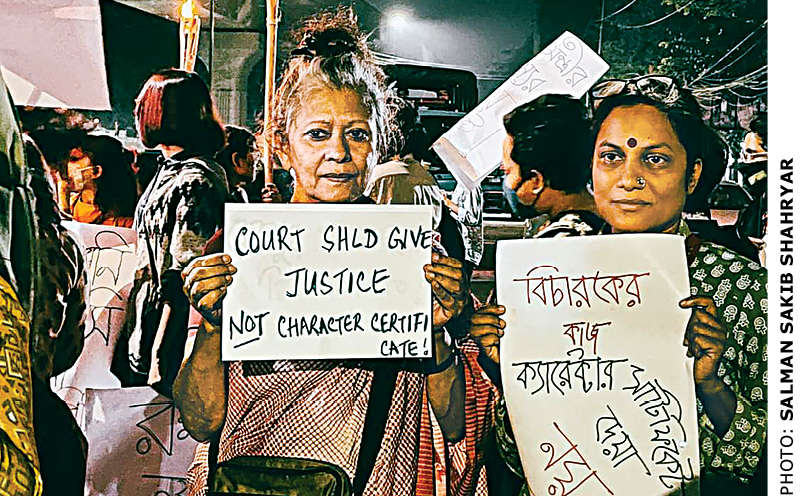 COURT SHLD GIVE
JUSTICE
NOT CHARACTER CERTIFI
CATE!
বিচারকের
কাজ
ক্যারেক্টার সার্টিফিকেট
দেয়া
নয়
PHOTO: SALMAN SAKIB SHAHRYAR